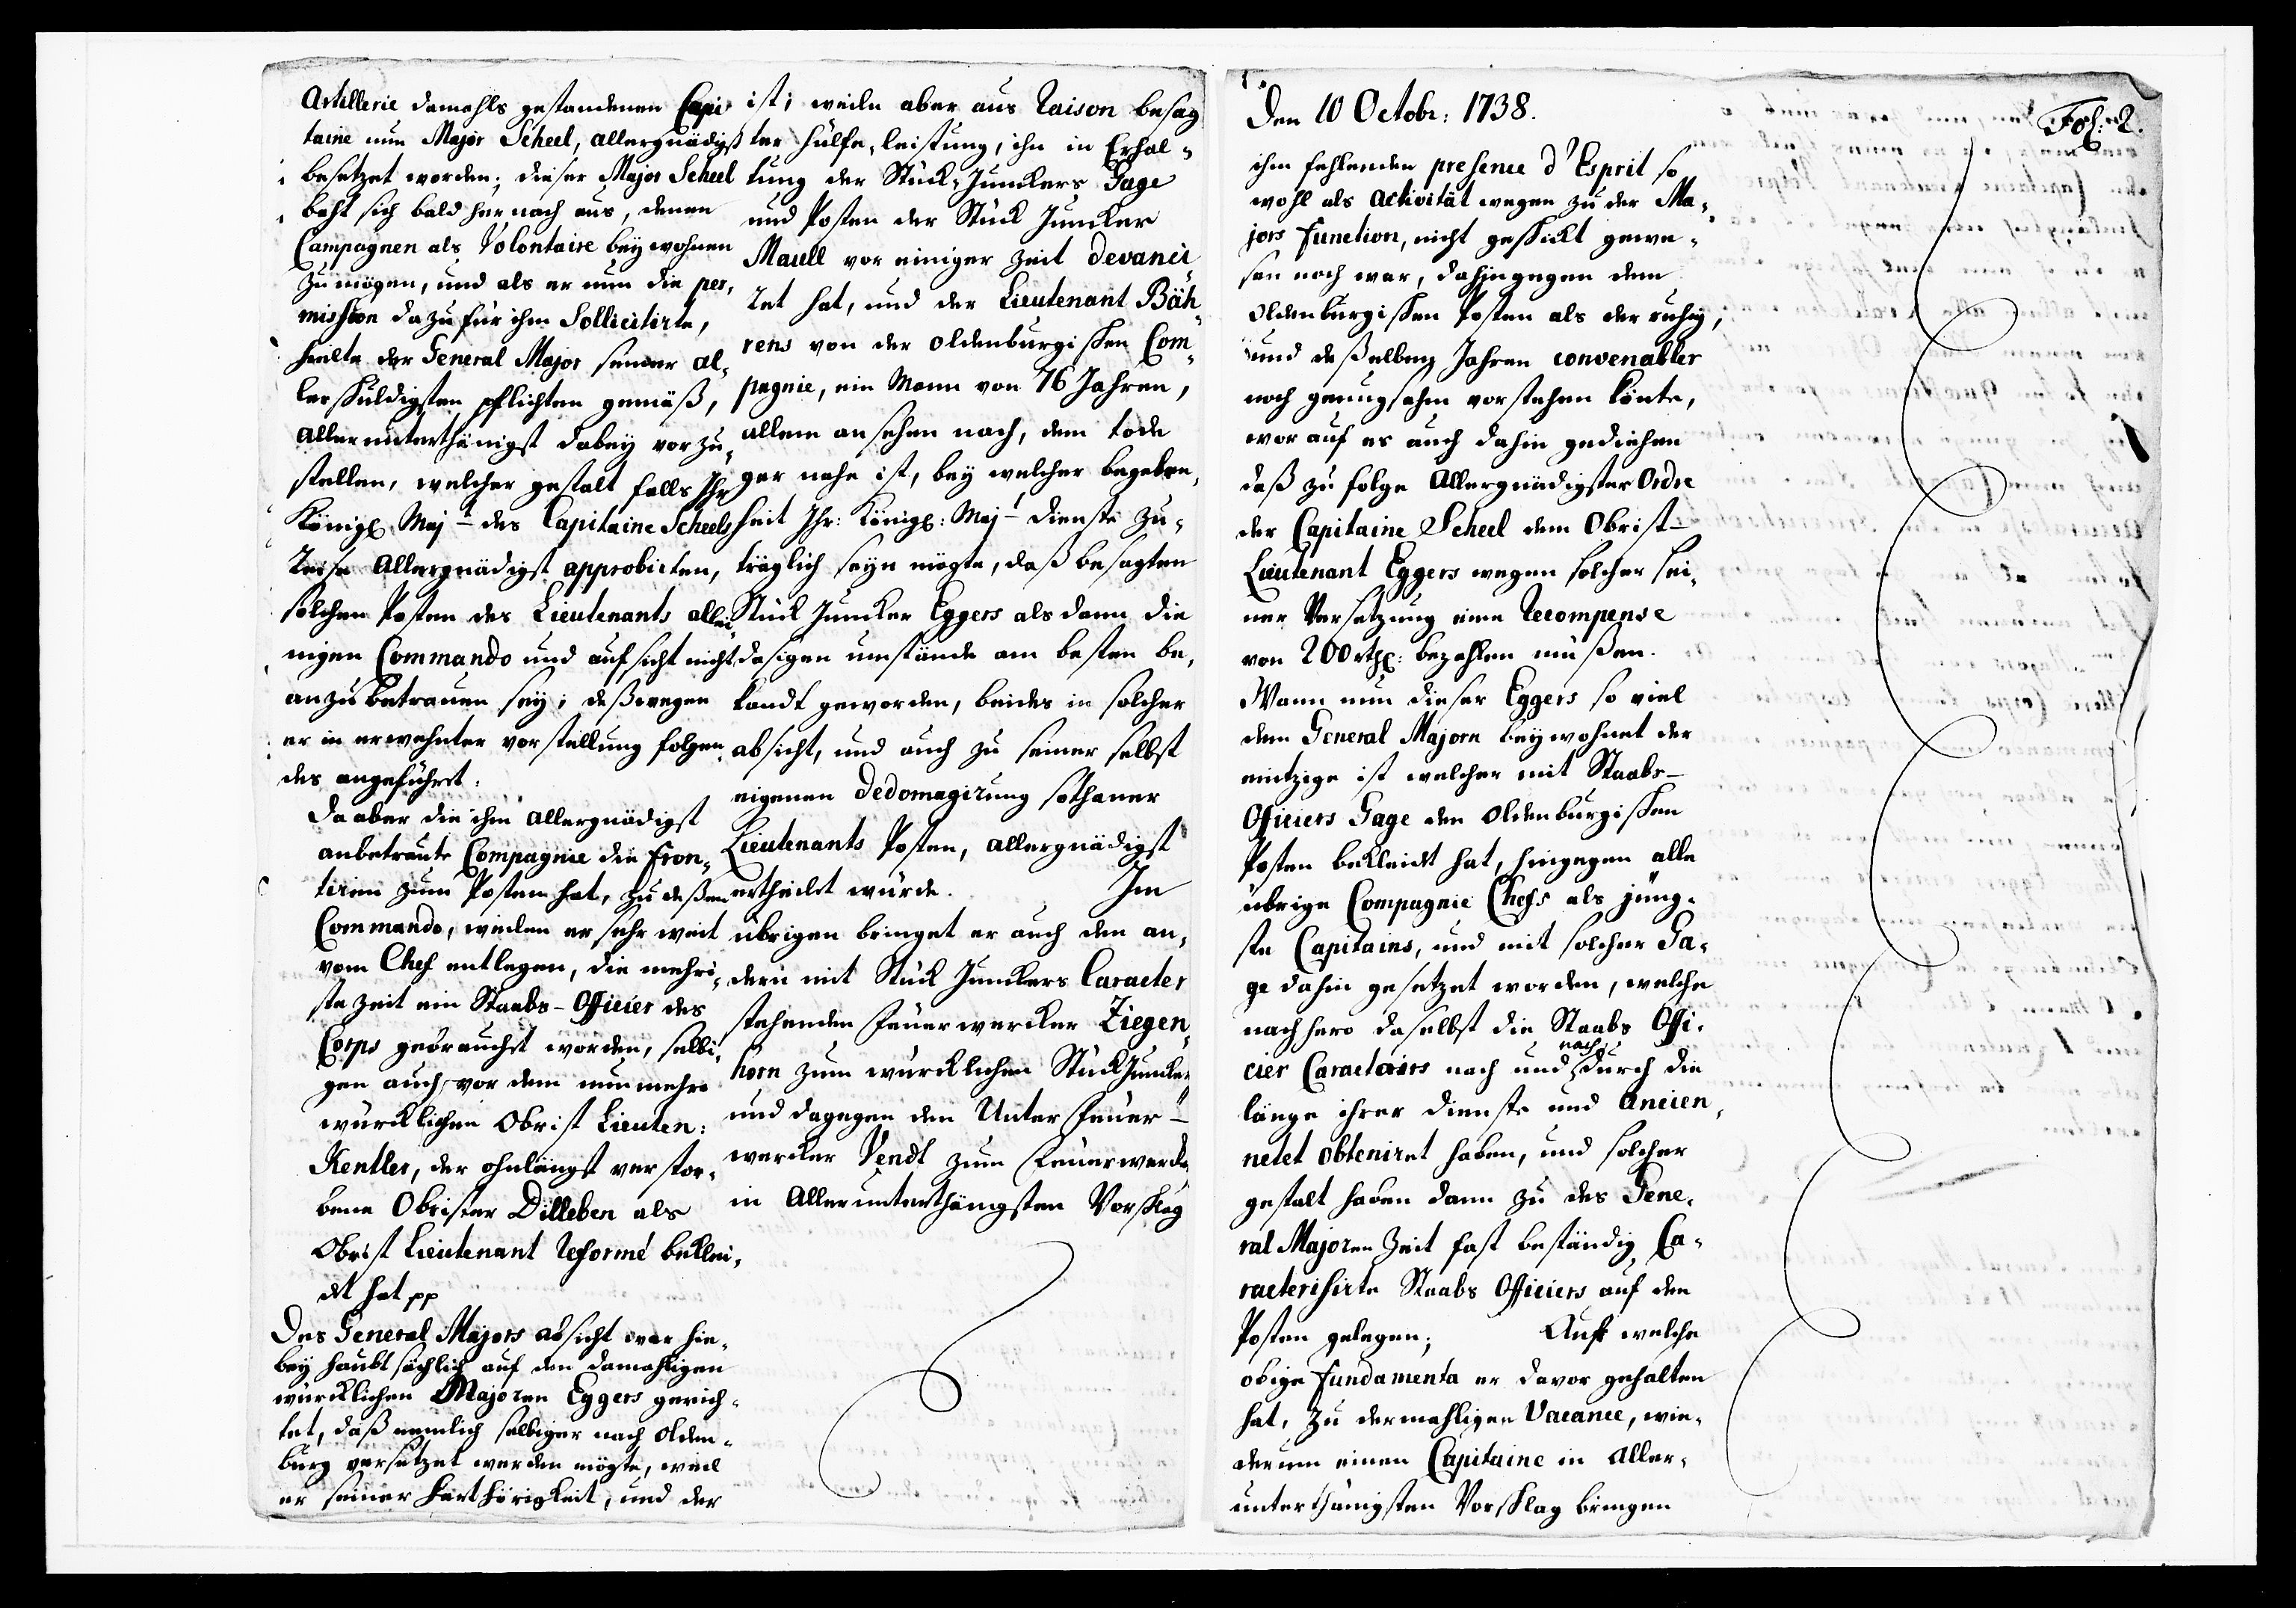 Artillerie damahls gestandenen Capi
taine nun Major Scheel, allergnädigst
besetzet worden; dieser Major Scheel
baht sich bald hernach aus, denen
Campagnen als Volontaire beÿwohnen
zu mögen, und als er nun die per,
mission dazu für ihm Sollicitirte,
hielte der General Major seiner al,
lerschuldigsten pflichten gemäß,
allerunterthänigst dabeÿ vorzu,
stellen, welcher gestalt falls Ihr
Königl Maj:t des Capitaine Scheels
Reise Allergnädigst approbirten,
solchen Posten des Lieutenants allei,
nigen Commando und aufsicht nicht
anzubetrauen seÿ; deßwegen
er in erwehnter vorstellung folgen,
des angeführt:
Da aber die ihm allergnädigst
anbetraute Compagnie die Fron,
tiren zum Posten hat, zu deßen
Commando, weilen er sehr weit
vom Chef entlegen, die mehri,
ste Zeit ein Staabs-Officier des
Corps gebraucht worden, selbi,
gen auch vor dem nunmehro
würcklichen Obrist Lieuten:
Kentler, der ohnlängst verstor,
bene Obrister Dilleben als
Obrist Lieutenant Reformé beklei,
det hat pp
Des General Majors absicht war hie,
beÿ haubtsächlich auf den damahligen
würcklichen Majoren Eggers gerich,
tet, daß nemlich selbiger nach Olden,
burg versetzet werden mögte, weil
er seiner Harthörigkeit, und der
ist; weile aber aus Raison besag
ter hülfe,leistung, ihn in Erhal,
tung der Stück,Junckers Gage
und Posten der Stück Juncker
Maull vor einiger Zeit devanci
ret hat, und der Lieutenant Bäh,
rens von der oldenburgischen Com,
pagnie, ein Mann von 76 Jahren,
allem ansehen nach, dem tode
gar nahe ist, beÿ welcher begeben,
heit Ihr: Königl: Maj:t Dienste zu,
träglich seÿn mögte, daß besagten
Stück Juncker Eggers als dann die
dasigen umstände am besten be,
kandt geworden, beides in solcher
absicht, und auch zu seiner selbst
eigenen Dedomagirung sothaner
Lieutenants Posten, allergnädigst
ertheilet würde. Im
übrigen bringet er auch den an,
dern mit Stück Junckers Caracter
stehenden Feuerwercker Ziegen,
horn zum würcklichen StückJuncker
und dagegen den Unter Feuer-
wercker Vendt zum Feuerwercker
in Allerunterthänigsten Vorschlag
Den 10 Octobr: 1738.
Fol: 2.
ihm fehlenden presence d'Esprit so
wohl als Activität wegen zu der Ma,
jors Function, nicht geschickt gewe,
sen noch war, dahingegen dem
oldenburgischen Posten als der ruhig,
und deßelben Jahren convenabler
noch genungsahm vorstehen könte,
worauf es auch dahin gediehen
daß zu folge Allergnädigster Ordre
der Capitaine Scheel dem Obrist-
Lieutenant Eggers wegen solcher sei,
ner Versetzung eine Recompense
von 200 rthl: bezahlen müßen.
Wann nun dieser Eggers so viel
dem General Majorn beÿwohnet der
eintzige ist welcher mit Staabs-
Officiers Gage den Oldenburgischen
Posten bekleidet hat, hingegen alle
übrige Compagnie Chefs als jüng,
ste Capitains, und mit solcher Ga,
ge dahin gesetzet worden, welche
nachhero daselbst die Staabs Offi,
cier Caracteirs nach und nach durch die
länge ihrer Dienste und Ancien,
netet obteniret haben, und solcher
gestalt haben dann zu des Gene,
ral Majoren Zeit fast beständig Ca,
racterisirte Staabs Officiers auf den
Posten gelegen; Auf welche
obige Fundamenta er davor gehalten
hat, zu dermahligen Vacance, wie,
derum einen Capitaine in Aller,
unterthänigsten Vorschlag bringen